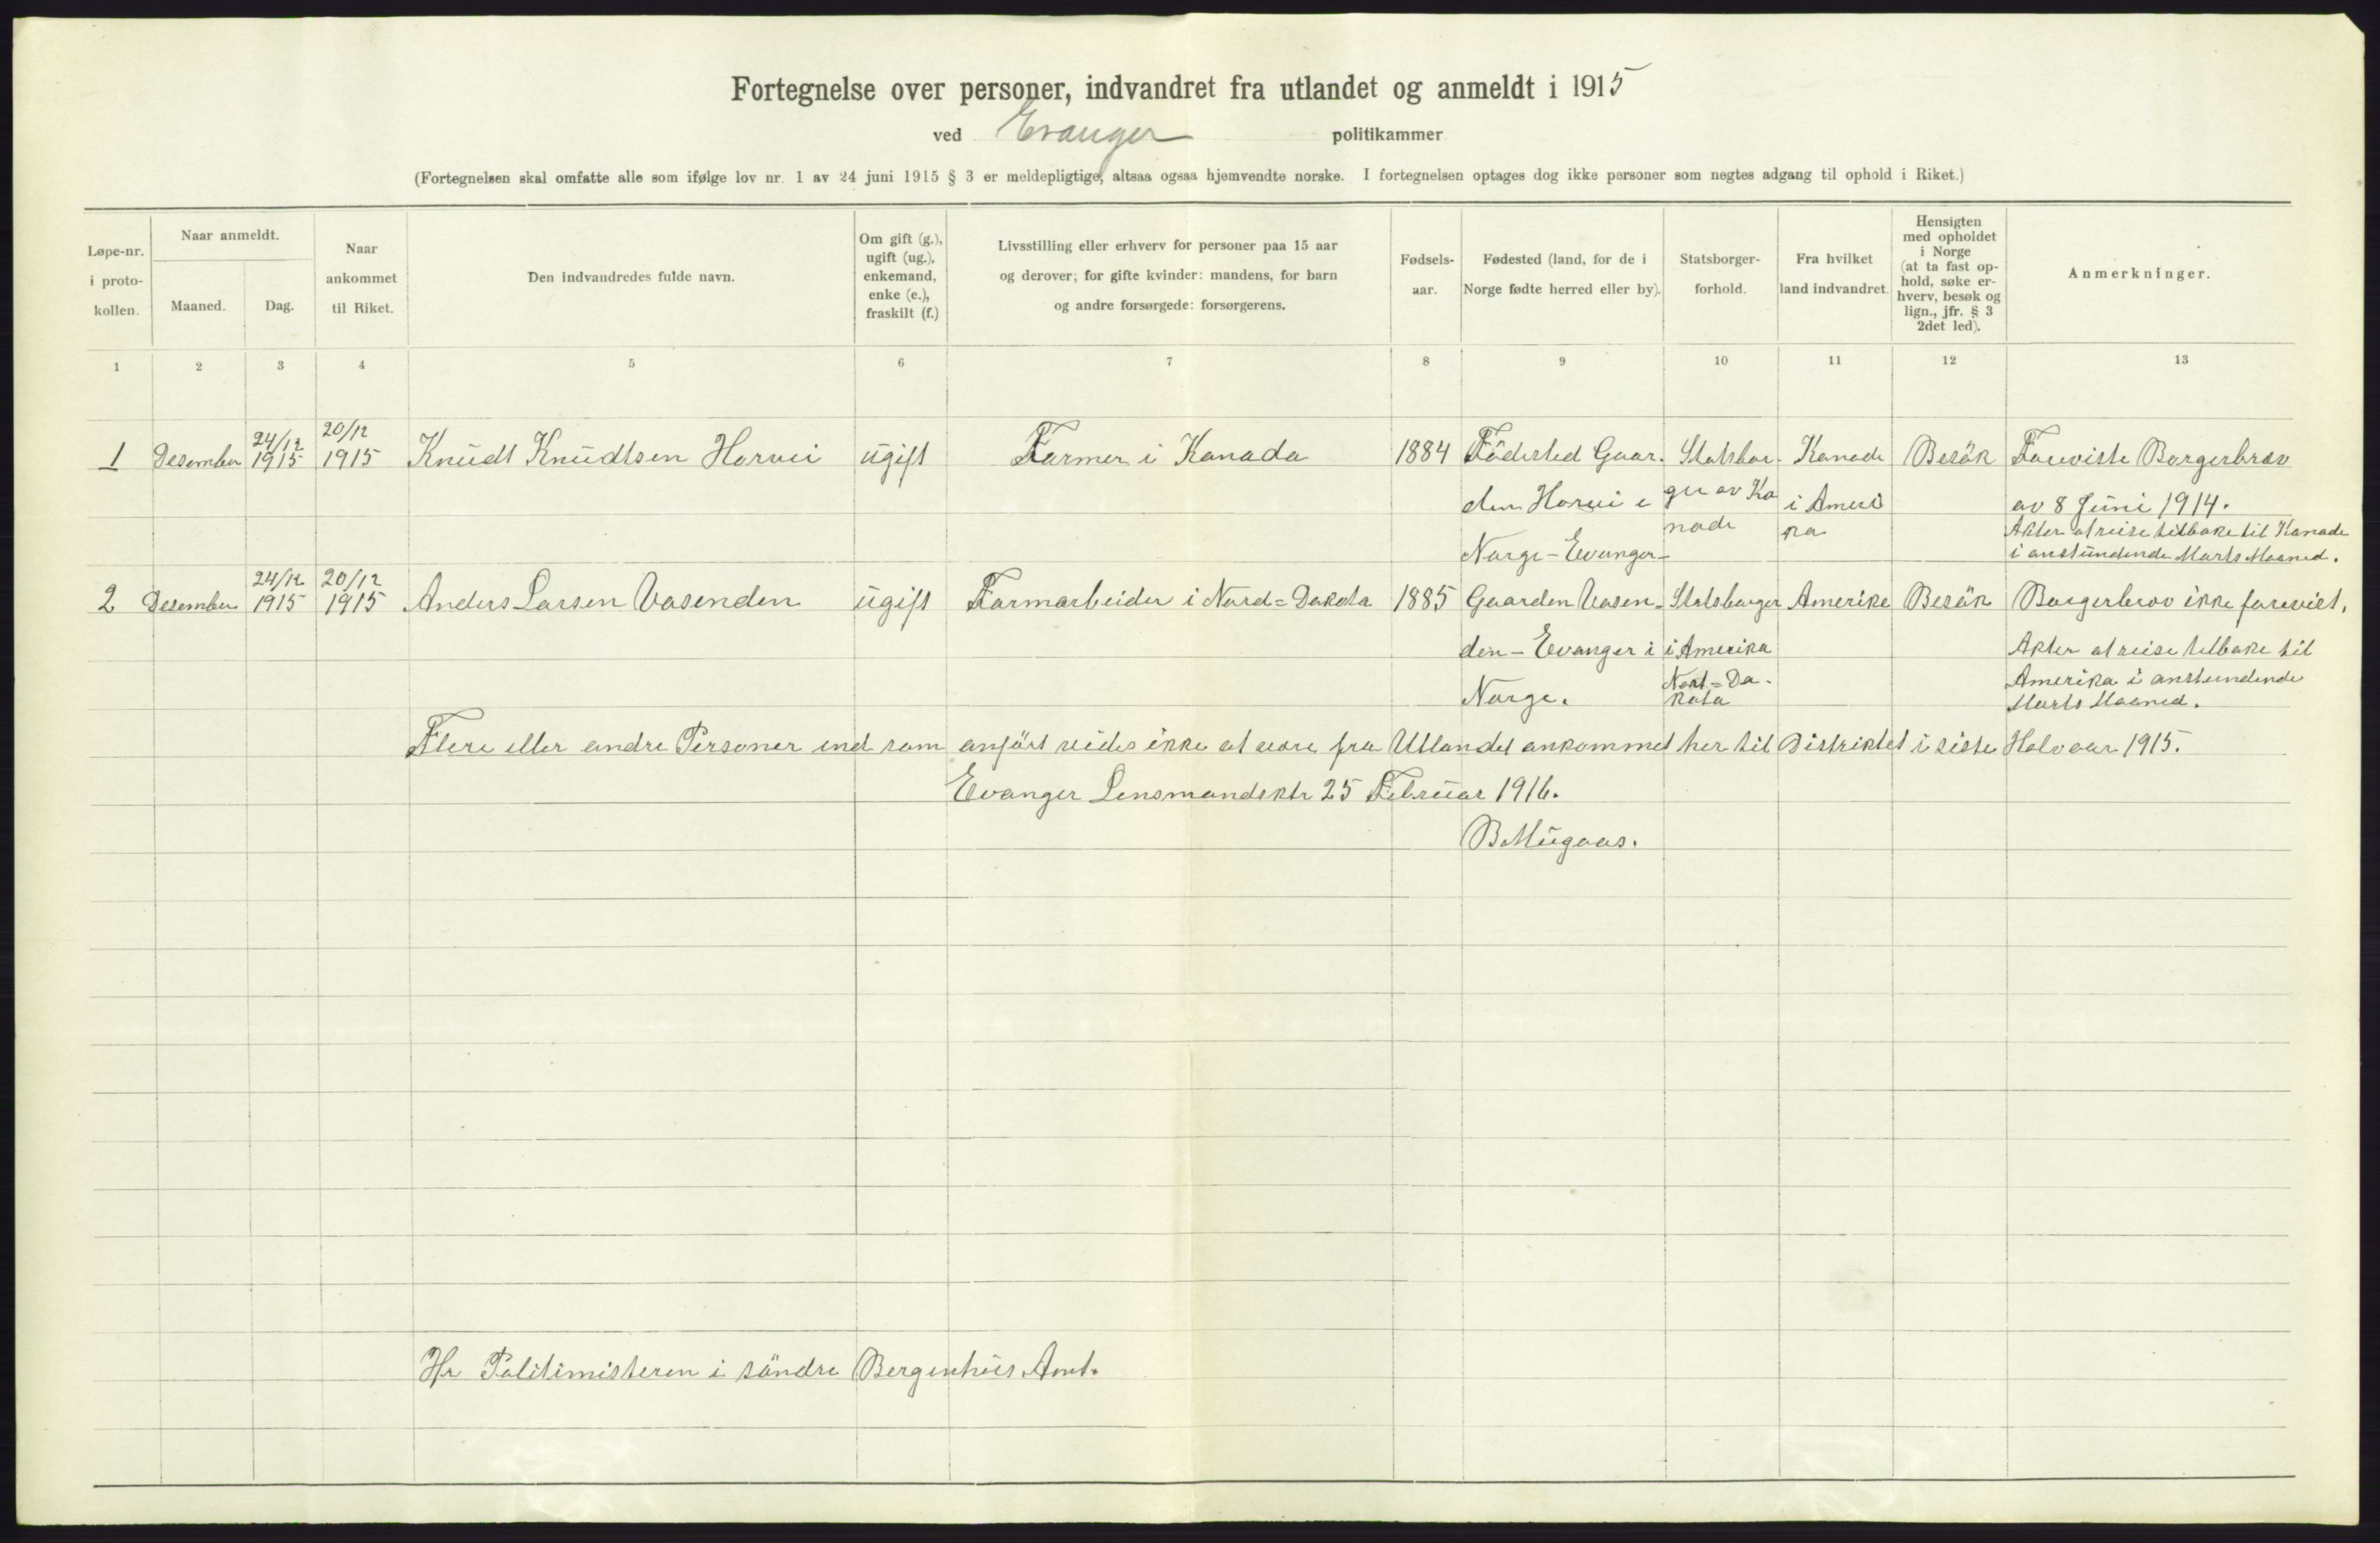 Fortegnelse over personer, indvandret fra utlandet og anmeldt i 1915
ved Evanger politikammer
(Fortegnelsen skal omfatte alle som ifølge lov nr. 1 av 24 juni 1915 § 3 er meldepligtige, altsaa ogsaa hjemvendte norske. I fortegnelsen optages dog ikke personer som negtes adgang til ophold i Riket.)
Løpe-nr.
i proto-
kollen.
Naar anmeldt.
Maaned.
Dag.
Naar
ankommet
til Riket.
Den indvandredes fulde navn.
Om gift (g.),
ugift (ug.),
enkemand,
enke (e.),
fraskilt (f.)
Livsstilling eller erhverv for personer paa 15 aar
og derover; for gifte kvinder: mandens, for barn
og andre forsørgede: forsørgerens.
Fødsels-
aar.
Fødested (land, for de i
Norge fødte herred eller by).
Statsborger-
forhold.
Fra hvilket
land indvandret.
Hensigten
med opholdet
i Norge
(at ta fast op-
hold, søke er-
hverv, besøk og
lign., jfr. § 3
2det led).
Anmerkninger.
1 2 3 4 5 6 7 8 9 10 11 12 13
24/12 20/12
1 Desember 1915 1915 Knudt Knudtsen Horvei ugift Farmer i Kanada 1884 Födested Gaar- Statsbor- Kanada Besök Foreviste Borgerbrev
den Horvei i ger av Ka i Ameri av 8 Juni 1914.
nada ka Akter at reise tilbake til Kanada
Norge - Evanger - i anstundende Marts Maaned.
24/12 20/12
2 Desember 1915 1915 Anders Larsen Vasenden ugift Farmarbeider i Nord=Dakota 1885 Gaarden Vasen- Statsborger Amerika Besök Borgerbrev ikke forevist,
den - Evanger i i Amerika Akter at reise tilbake til
Norge. Nord=Da- Amerika i anstundende
kota Marts Maaned.
Flere eller andre Personer end som anfört vides ikke at være fra Utlandet ankommet her til Distriktet i siste Halvaar 1915.
Evanger Lensmandsktr 25 Februar 1916.
B Mugaas.
Hr Politimesteren i söndre Bergenhus Amt.